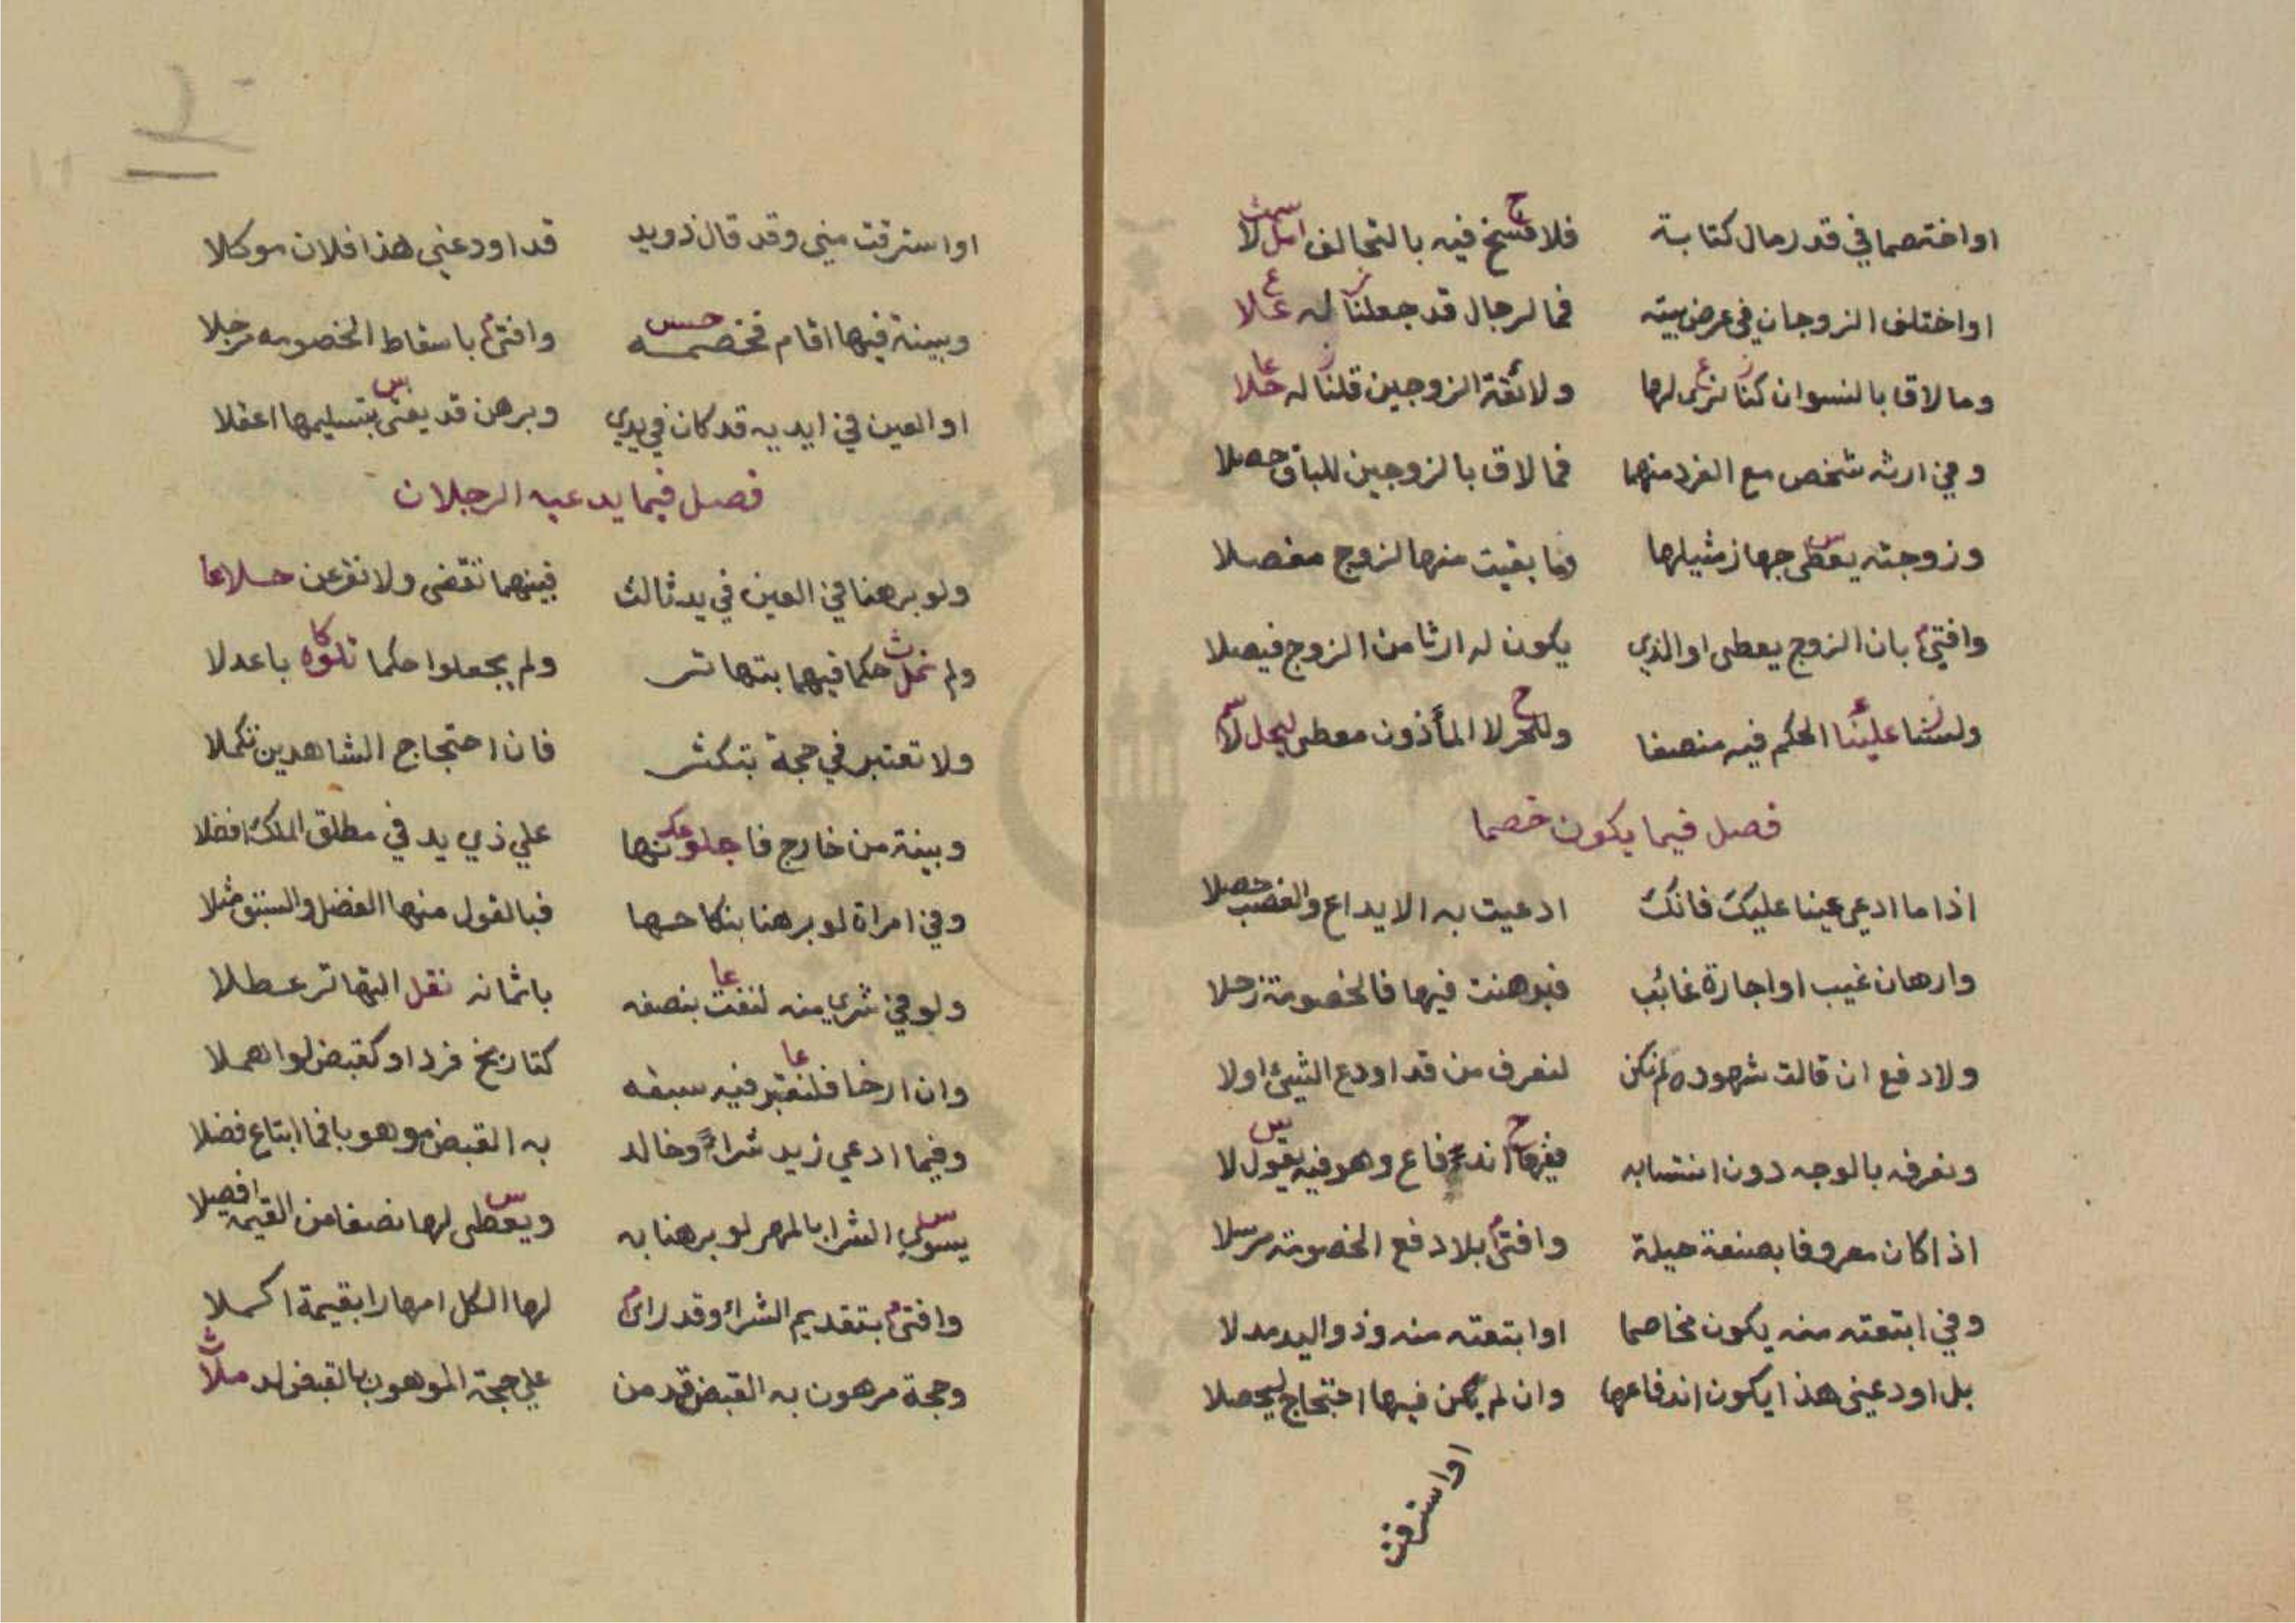 او اختصما في قدر مال كتابة فلا فسخ فيه بالتحالف
او اختلف الزوجان في عرض بيته فما لرجال قد جعلنا له علا
وما لاقا بالنسوان كنا نرى لها ولائقة الزوجين قلنا له حلا
وفي ارثه شخص مع الفرد منهما فما لاق بالزوجين للباقي حصلا
وزوجته يعطى جهاز مثيلها وما بقيت منها لزوج مفصلا
وافتى بان الزوج يعطى او الذي يكون له ارثا من الزوج فيصلا
ولسنا علينا الحكم فيه منصفا وللحر لا المأذون معطى
فصل فيما يكون خصما
اذا ما ادعي عينا عليك فانك ادعيت به الايداع والغصب حصلا
وارهان غيب او اجارة غائب فبرهنت فيها فالخصومة زحلا
ولا دفع ان قالت شهوده لم نكن لنعرف من قد اودع الشيئ اولا
ونعرفه بالوجه دون انتسابه اندفاع وهو فيه يقول لا
اذا كان معروفا بصنعة حيلة وافتى بلا دفع الخصومة مرسلا
وفي ابتعته منه يكون مخاصما او ابتعته منه وذو اليد مدلا
بل اودعيني هذا يكون اندفاعها وان لم يكن فيها احتجاج ليحصلا
او استرقت
او استرقت مني وقد قال ذو يد قد اودعني هذا فلان موكلا
وبينة فيها اقام فخصمه وافتى باسقاط الخصومه مرجلا
او العين في ايديه قد كان في يدي وبرهن قد يعنى بتسليمها اعقلا
فصل فيما يدعيه الرجلان
ولو برهنا في العين في يد ثالث فبينهما نقضى ولا نقرعن حلا
ولم نمل حكما فيهما بتهاتر ولم يجعلوا حكما تلوه باعدلا
ولا تعتبر في حجة بتكثر فان احتجاج الشاهدين تكملا
وبينة من خارج فاجلونها علي ذي يد في مطلق الملك افضلا
وفي امراة لو برهنا بنكاحها فبالقول منها الفضل والسبق مثلا
ولو في شرى منه لنفت بنصفه باثمانه نقل التهاتر عطلا
وان ارخا فلنعتبر فيه سبقه كتاريخ فرد او كقبض لو اهملا
وفيما ادعي زيد شراء وخالد به القبض موهوبا فما ابتاع فضلا
يسوي الشرا بالمهر لو برهنا به ويعطى لها نصفا من القيمه افصلا
وافتى بتقديم الشراء وقد رائ لها الكل امهارا بقيمة اكملا
وحجة مرهون به القبض قد من علي حجة الموهوب بالقبض ملا